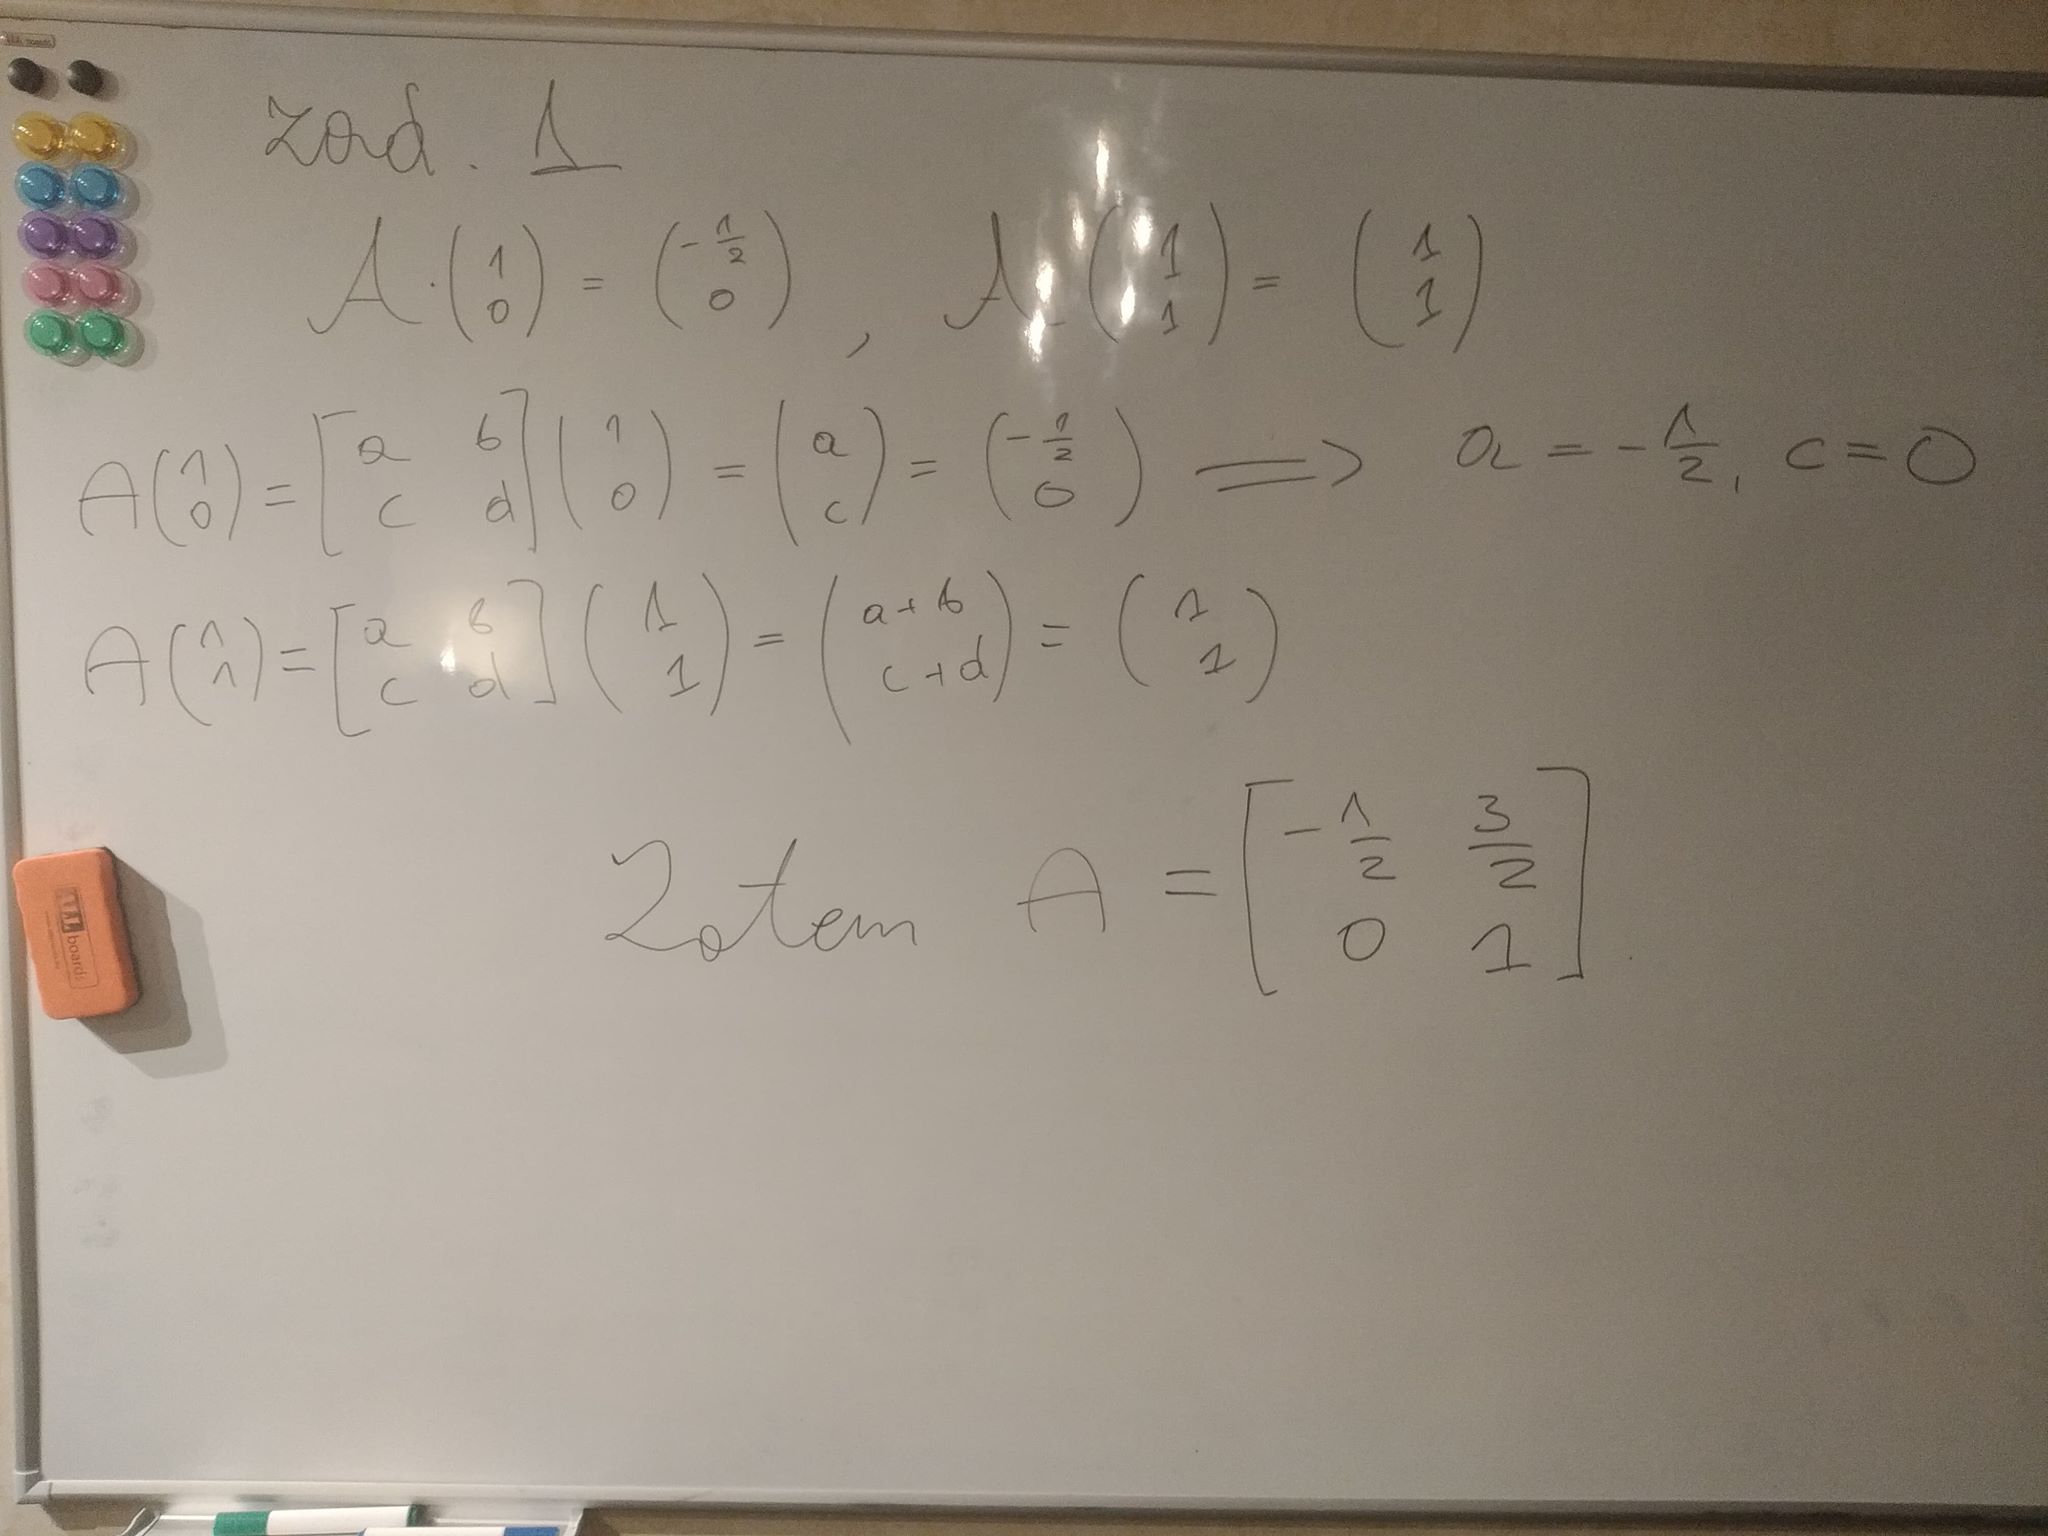 zad. 1
A · (1 0) = (-1/2 0), A · (1 1) = (1 1)
A(1 0) = [a b c d](1 0) = (a c) = (-1/2 0) ⟹ a = -1/2, c = 0
A(1 1) = [a b c d](1 1) = (a+b c+d) = (1 1)
Zatem A = [-1/2 3/2 0 1].
boards